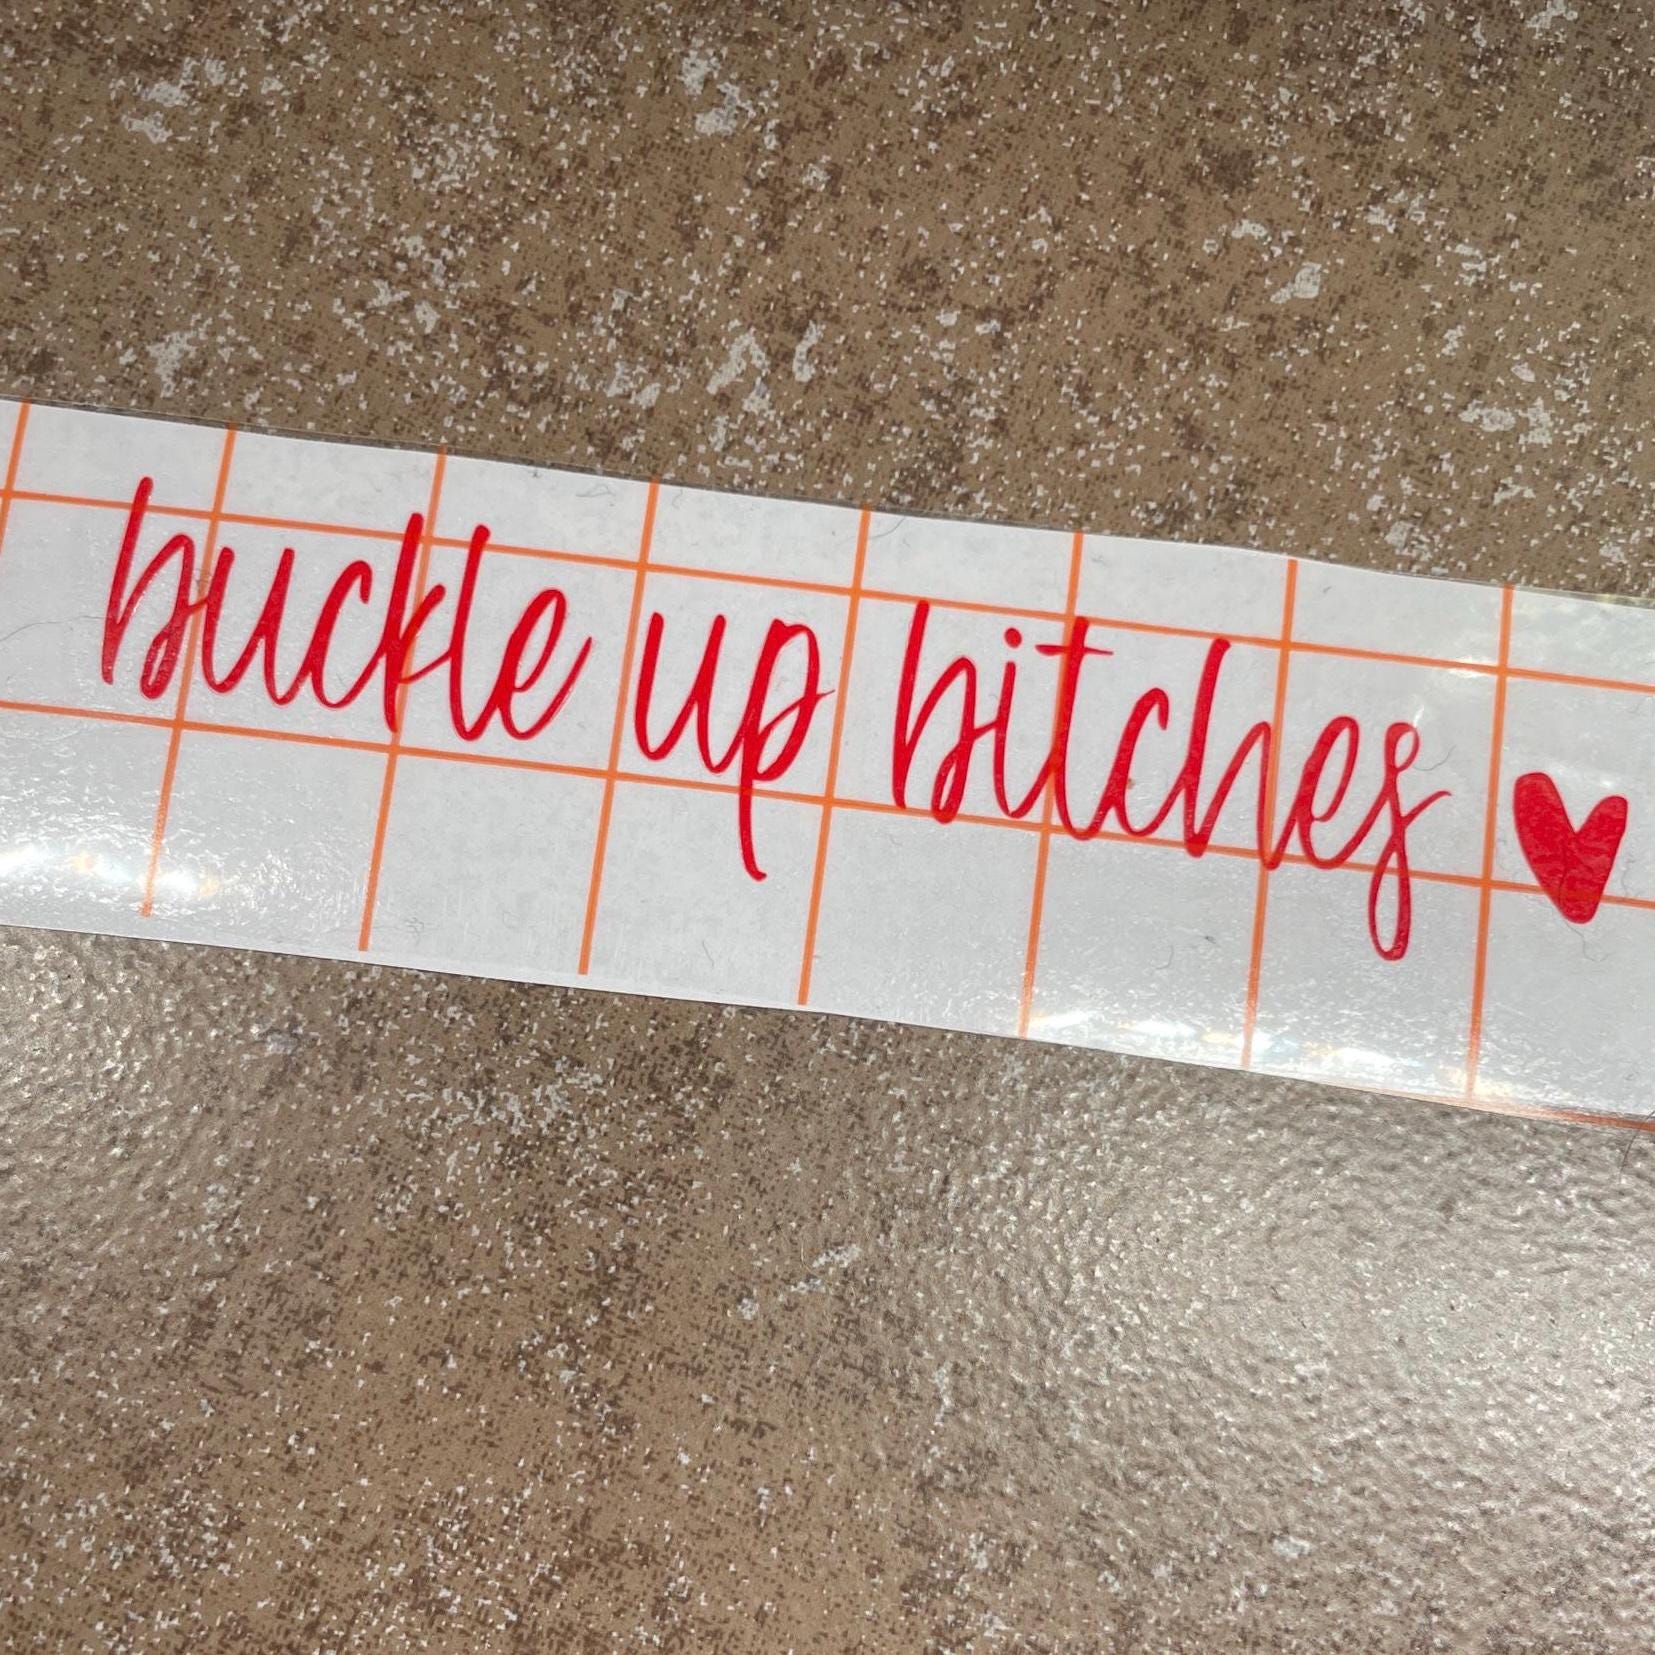 buckle up bitches ♥